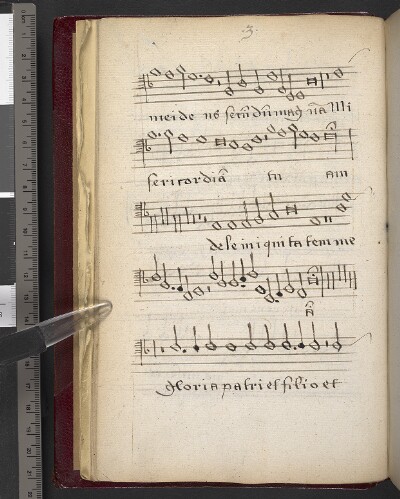 3
mei de us secūd̄ū mag nā Mi
sericordiā tu am
dele iniqui ta tem me
ā
gloria patri et filio et